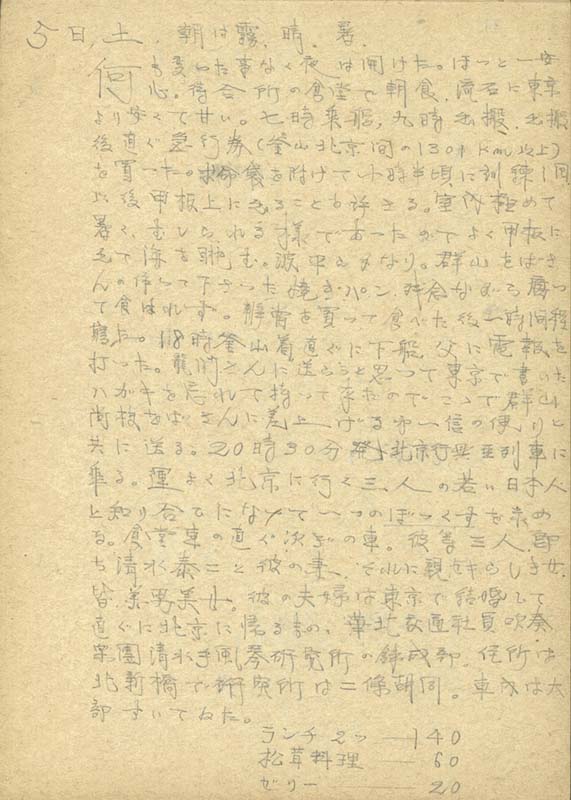 5日,土.朝は霧.晴.暑.
何も変った事なく夜は開けた。ほっと一安
心。待合所の食堂で朝食.流石に東京
より安くて甘い。七時乗船,九時出搬.出搬
後直ぐ急行券(釜山北京間の1301km以上)
を買った。救命袋を附けて 時半頃に訓練1回
以後甲板上に出ることも許さる。室内極めて
暑く,むしられる様であったのでよく甲板に
出て海を眺む。波中々かなり。群山をばさ
んの作って下さった焼きパン,
て食はれず。 弁当を買って食べた後一時間程
寝た。18時釜山着直ぐに下船,父に電報を
打った。 さんに送らうと思って東京で書いた
ハガキを忘れて持って来たのでここで群山
をばさんに差上げる第一信の便りと
共に送る。20時30分発北京行興亜列車に
乗る。運よく北京に行く三人の若い日本人
と知り合ひになって一つのぼっくすを求め
る。食堂車の直ぐ次ぎの車。彼等三人,即
ち清水泰二と彼の妻,それに親せきらしき女.
皆.美男美女。彼の夫婦は東京で結婚して
直ぐに北京に帰るもの、華北交通社員吹奏
楽團清水手風琴研究所の 住所は
北新橋で研究所は二條胡同。車内は大
部すいてねた。
ランチ2ツ ― 140
松茸料理 ― 60
ゼリー ― 20